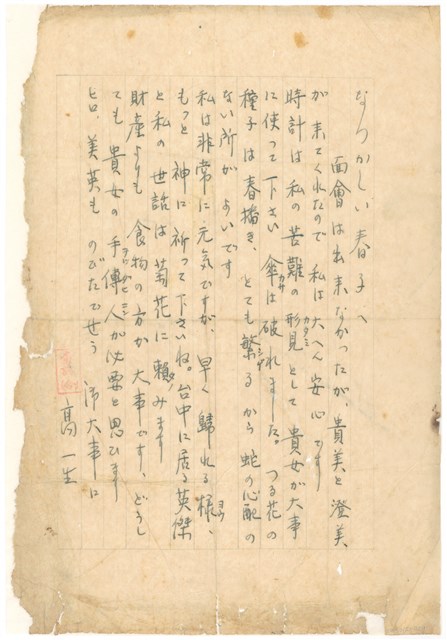 なつかしい春子へ
面會は出来なかったが、貴美と澄美
が来てくれたので私は大へん安心です
時計は私の苦難の形見カタミとして貴女が大事
に使って下さい 傘カサは破れました。つる花の
種子は春播き、とても繁シゲるから蛇の心配の
ない所がよいです
私は非常に元気ですが、早く歸れる様ヨウ、
もっと神に祈って下さいね。台中に居る英傑
と私の世話は菊花に頼みます
財産よりも食物の方が大事です、どうし
ても貴女の手傳テツダイ人ニンが必要と思ひます
旨、美英ものびたでせう 御大事に
高一生